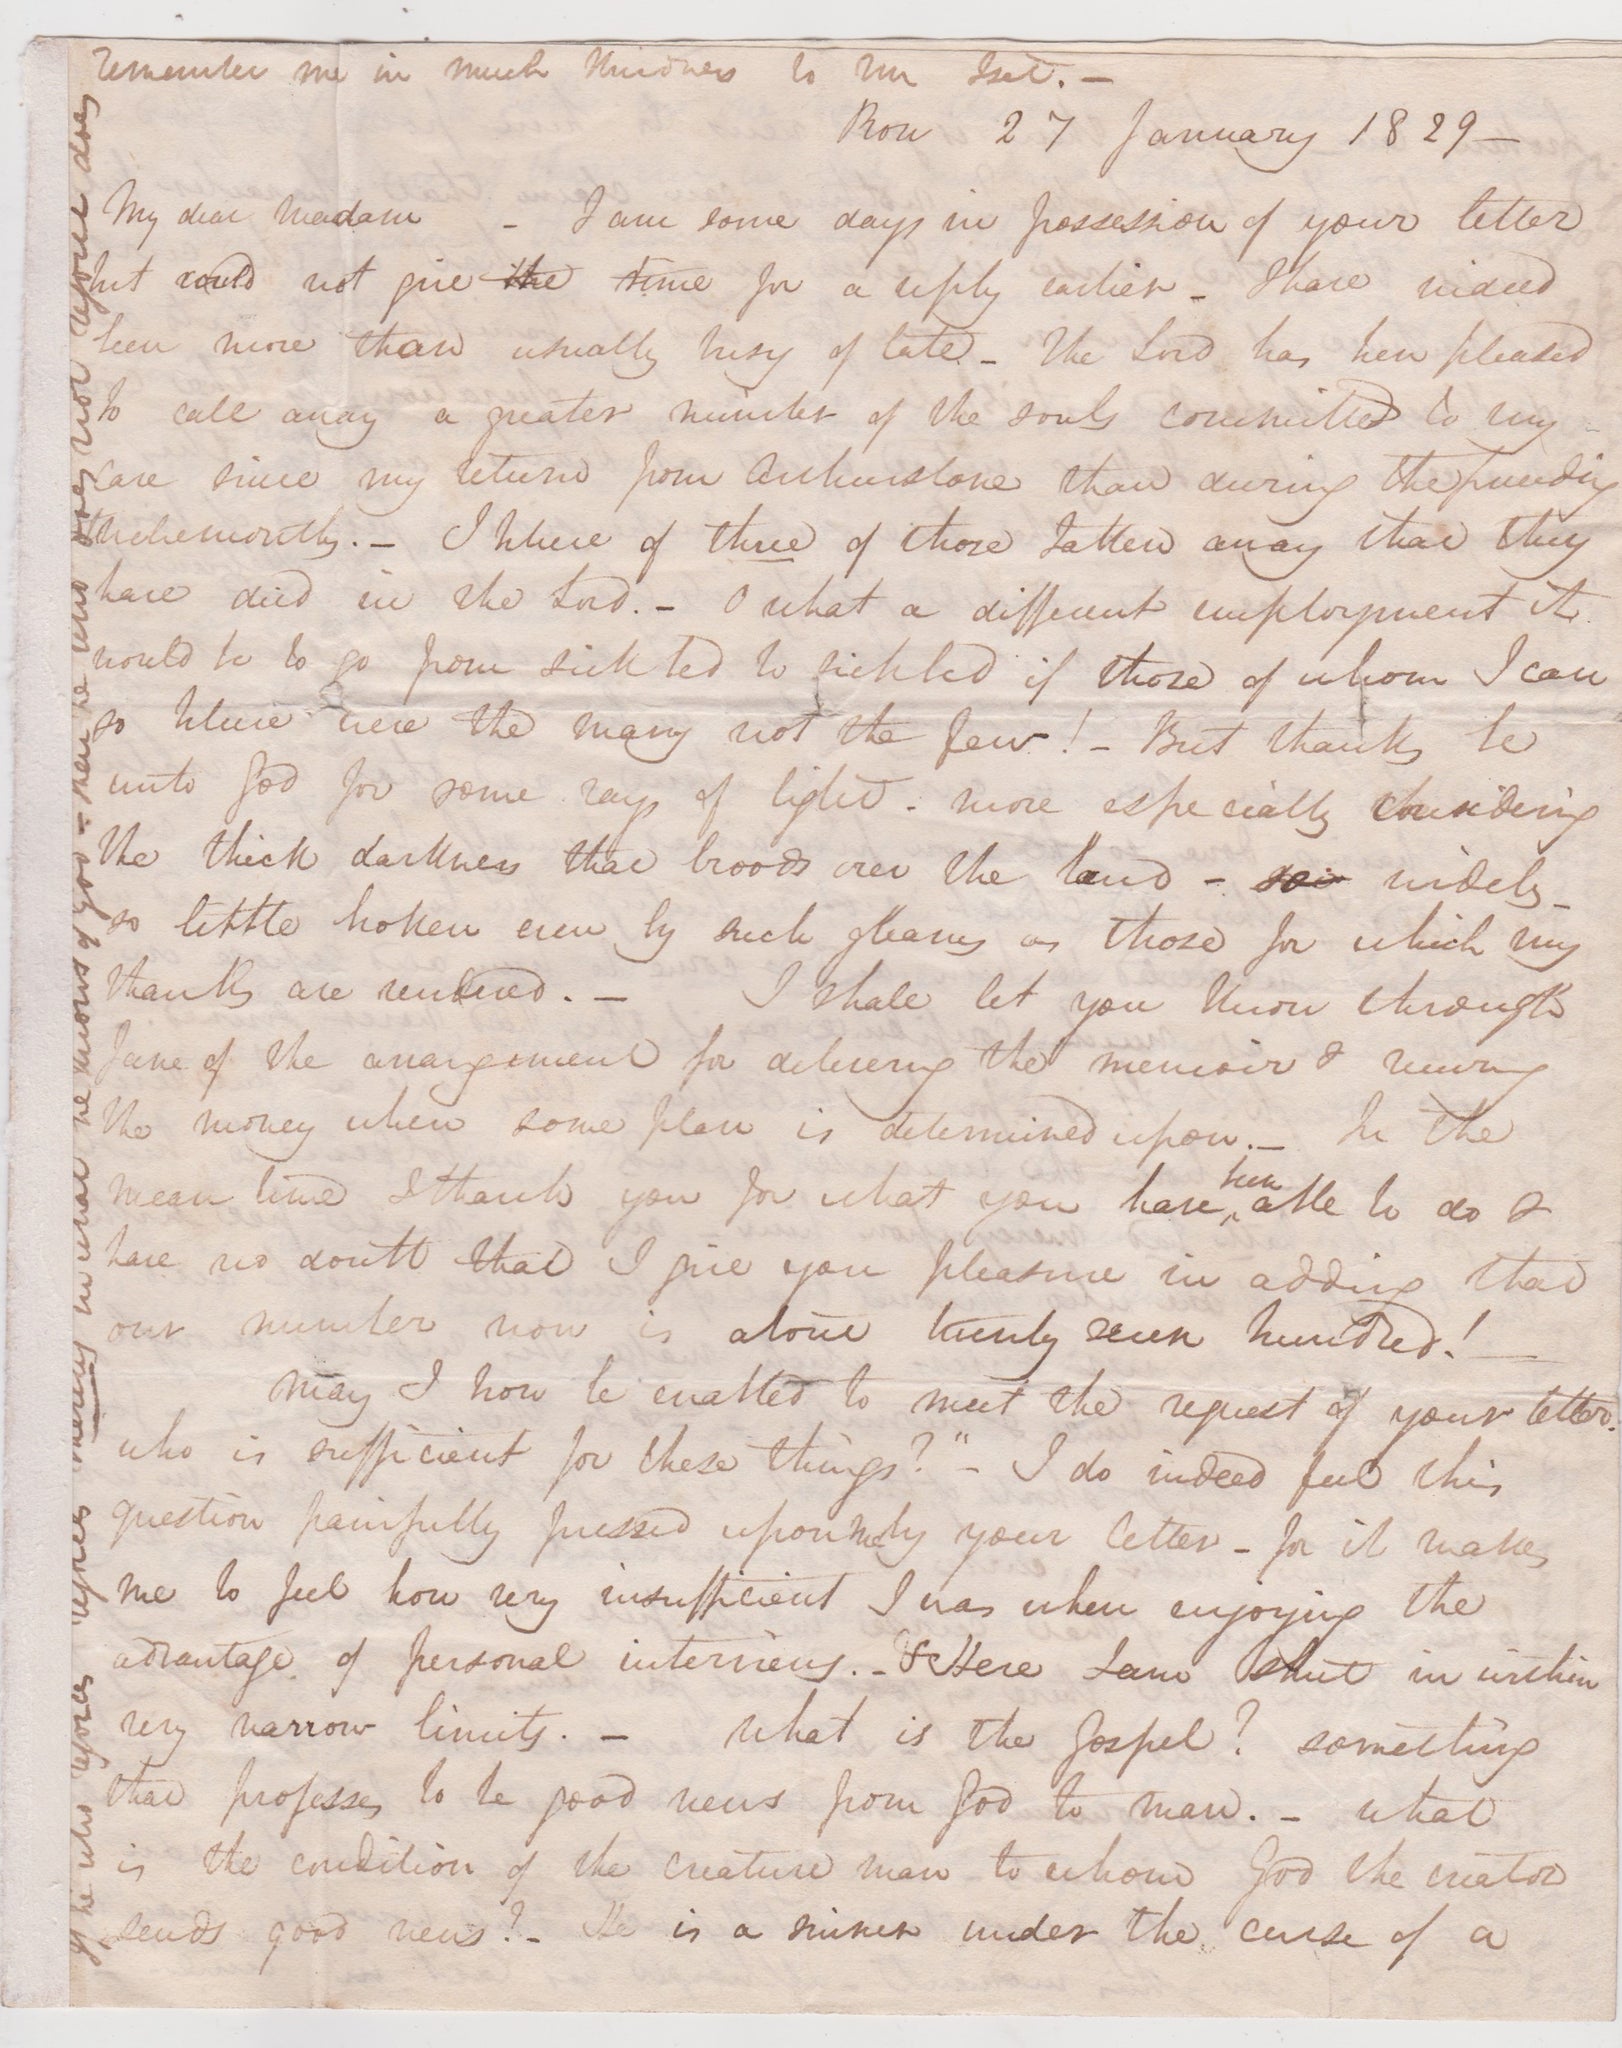 remember me in much kindness to Mr
Row 27 January 1829 —
My dear Madam - I am some days in possession of your letter
but could not give the time for a reply earlier - I have indeed
been more than usually busy of late - The Lord has been pleased
to call away a greater number of the souls committed to my
care since my return from than during the preceding
twelvemonth. - I believe of three of those taken away that they
have died in the Lord. - O what a different employment it
would be to go from sickbed to sickbed if those of whom I can
so believe were the many not the few! - But thanks be
unto God for some rays of light - more especially considering
the thick darkness that broods over the land - so widely -
so little broken even by such gleams as those for which my
thanks are rendered. - I shall let you know through
Jane of the arrangement for delivering the memoir & receiving
the money when some plan is determined upon. - In the
mean time I thank you for what you have been able to do &
have no doubt that I give you pleasure in adding that
our number now is above twenty seven hundred! —
May I now be enabled to meet the request of your letter.
who is sufficient for these things?" - I do indeed feel this
question painfully pressed upon me by your letter - for it makes
me to feel how very insufficient I was when enjoying the
advantage of personal interviews. - & Here I am shut in within
very narrow limits. - What is the Gospel? something
that professes to be good news from God to man. - What
is the condition of the creature man to whom God the creator
sends good news? - He is a sinner under the curse of a
If he who rejoices rejoices merely in what he knows of you - then he who does not rejoice does